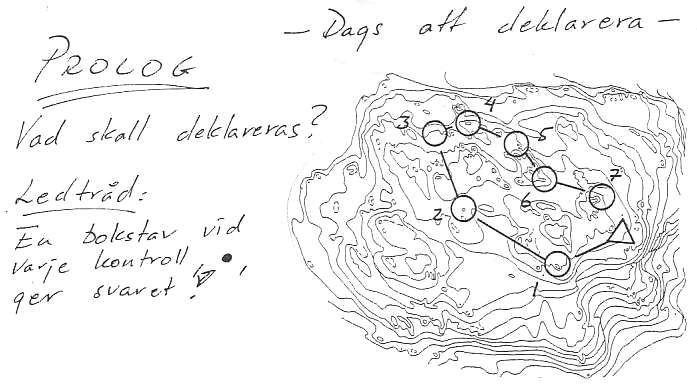 — Dags att deklarera —
PROLOG
Vad skall deklareras?
Ledtråd:
En bokstav vid
varje kontroll
ger svaret!
3
4
5
7
2
6
1